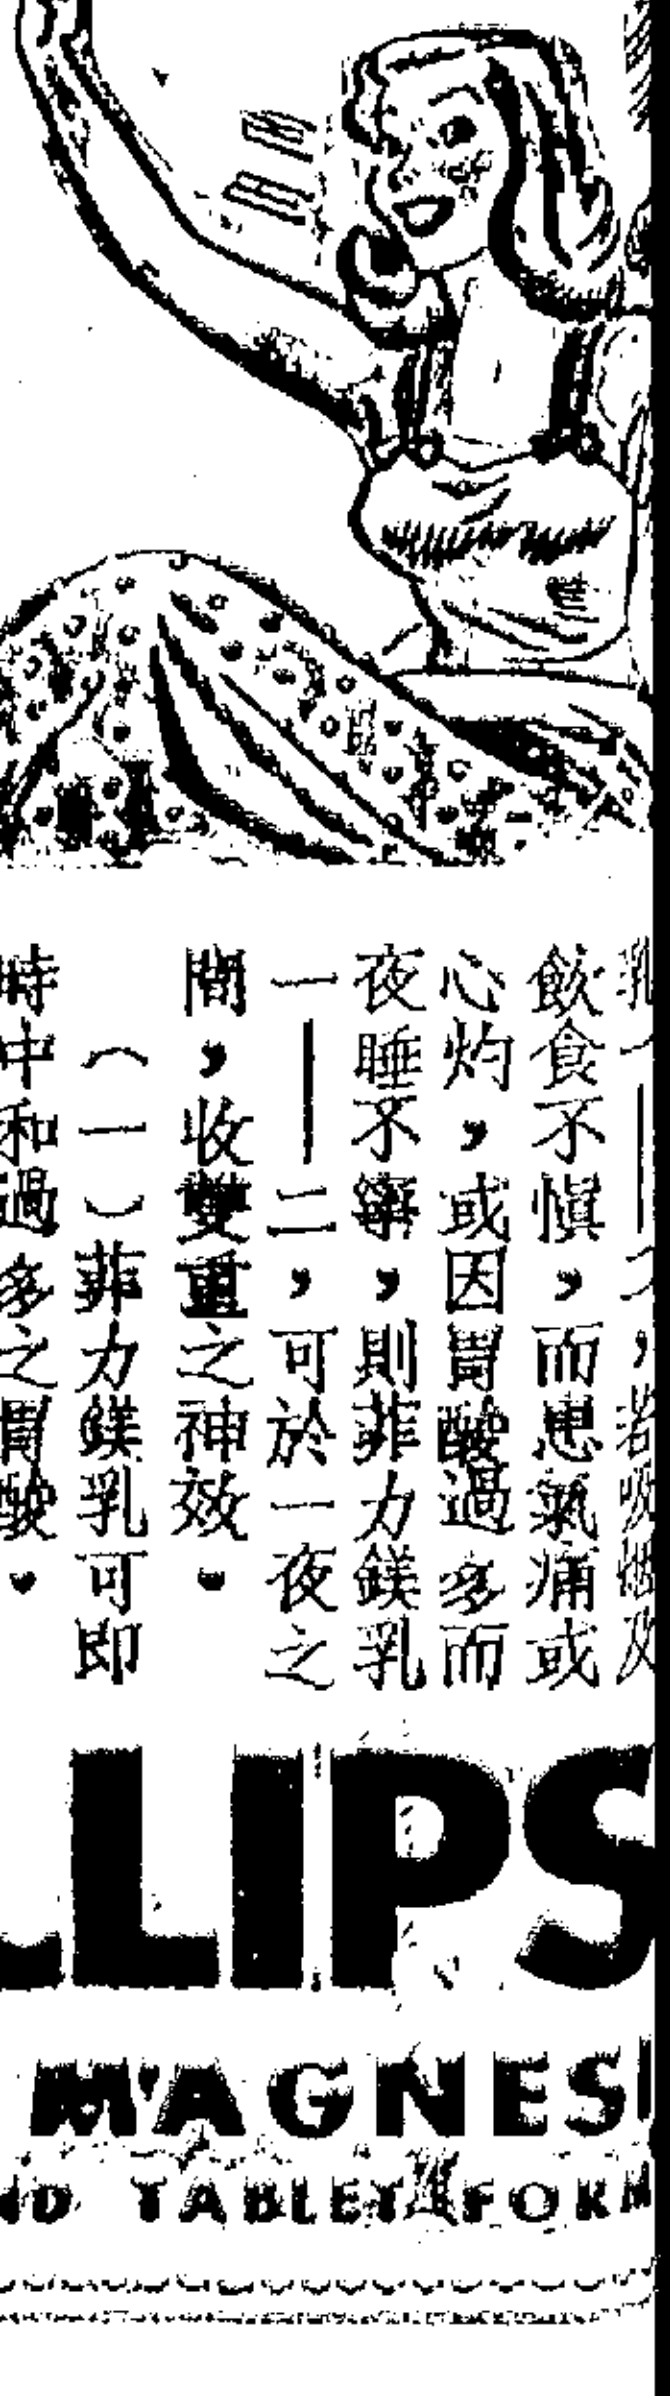 乳一——二，若吸煙及
飲食不慎，而患氣痛或
心灼，或因胃酸過多而
夜睡不寧，則菲力鎂乳
一——二，可於一夜之
間，收雙重之神效。
（一）菲力鎂乳可即
時中和過多之胃酸。
LLIPS
MAGNESI
ND TABLET FORM